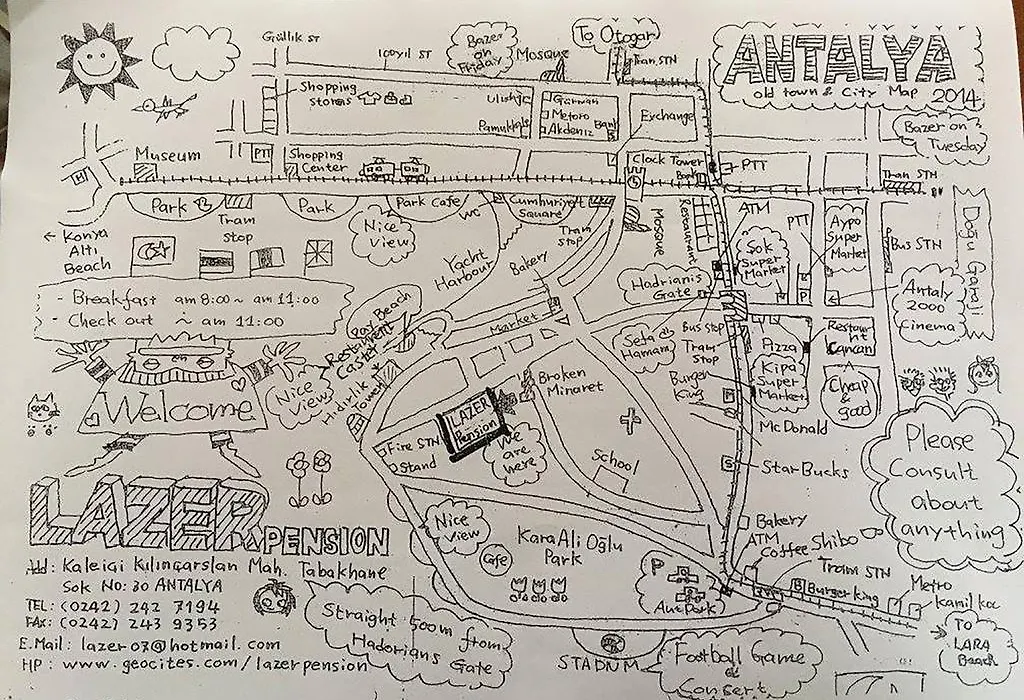 Güllik ST
100yil ST
Bazer
on
Friday
Mosque
To Otogar
Tram STN
ANTALYA
old town & City Map 2014
Shopping
stores
Ulusoy
Pamukkale
Gürman
Metoro
Akdeniz
Bank
Exchange
Bazer on
Tuesday
Museum
PTT
Shopping
Center
Clock Tower
Bank
PTT
Tram STN
M
Park
Tram
Stop
Park
Park Cafe
WC
Cumhuriyet
Square
Tram
stop
Mosque
Restaurant
ATM
PTT
P
Aypo
Super
Market
Bus STN
Doğu Garaji
← Konya
Alti
Beach
Nice
View
Yacht
Harbour
Bakery
Sok
Super
Market
Hadrianis
Gate
Antaly
2000
Cinema
- Breakfast am 8:00 ~ am 11:00
- Check out ~ am 11:00
Pay Beach
Restaurant
Castel
Market
Sefa
Hamam
Bus stop
Tram
Stop
Pizza
Restau
nt
Cancan
Nice
View
Hidirlik
Tower
Broken
Minaret
Burger
King
Kipa
Super
Market
Cheap
&
good
Welcome
LAZER
Pension
We
are
here
McDonald
Fire STN
Stand
School
StarBucks
Please
Consult
about
anything
LAZER PENSION
Nice
View
Cafe
Kara Ali Oğlu
Park
P
Aut Park
Bakery
ATM
Coffee Shibo
Tram STN
B Burger king
Metro
Kamil koc
To
LARA
Beach
Add: Kaleiçi Kılınçarslan Mah. Tabakhane
Sok No: 30 ANTALYA
TEL: (0242) 242 7194
FAX: (0242) 243 9353
E.Mail: lazer07@hotmail.com
HP: www.geocites.com/lazerpension
Straight 500m from
Hadorians
Gate
STADNUM
Football Game
&
Concert